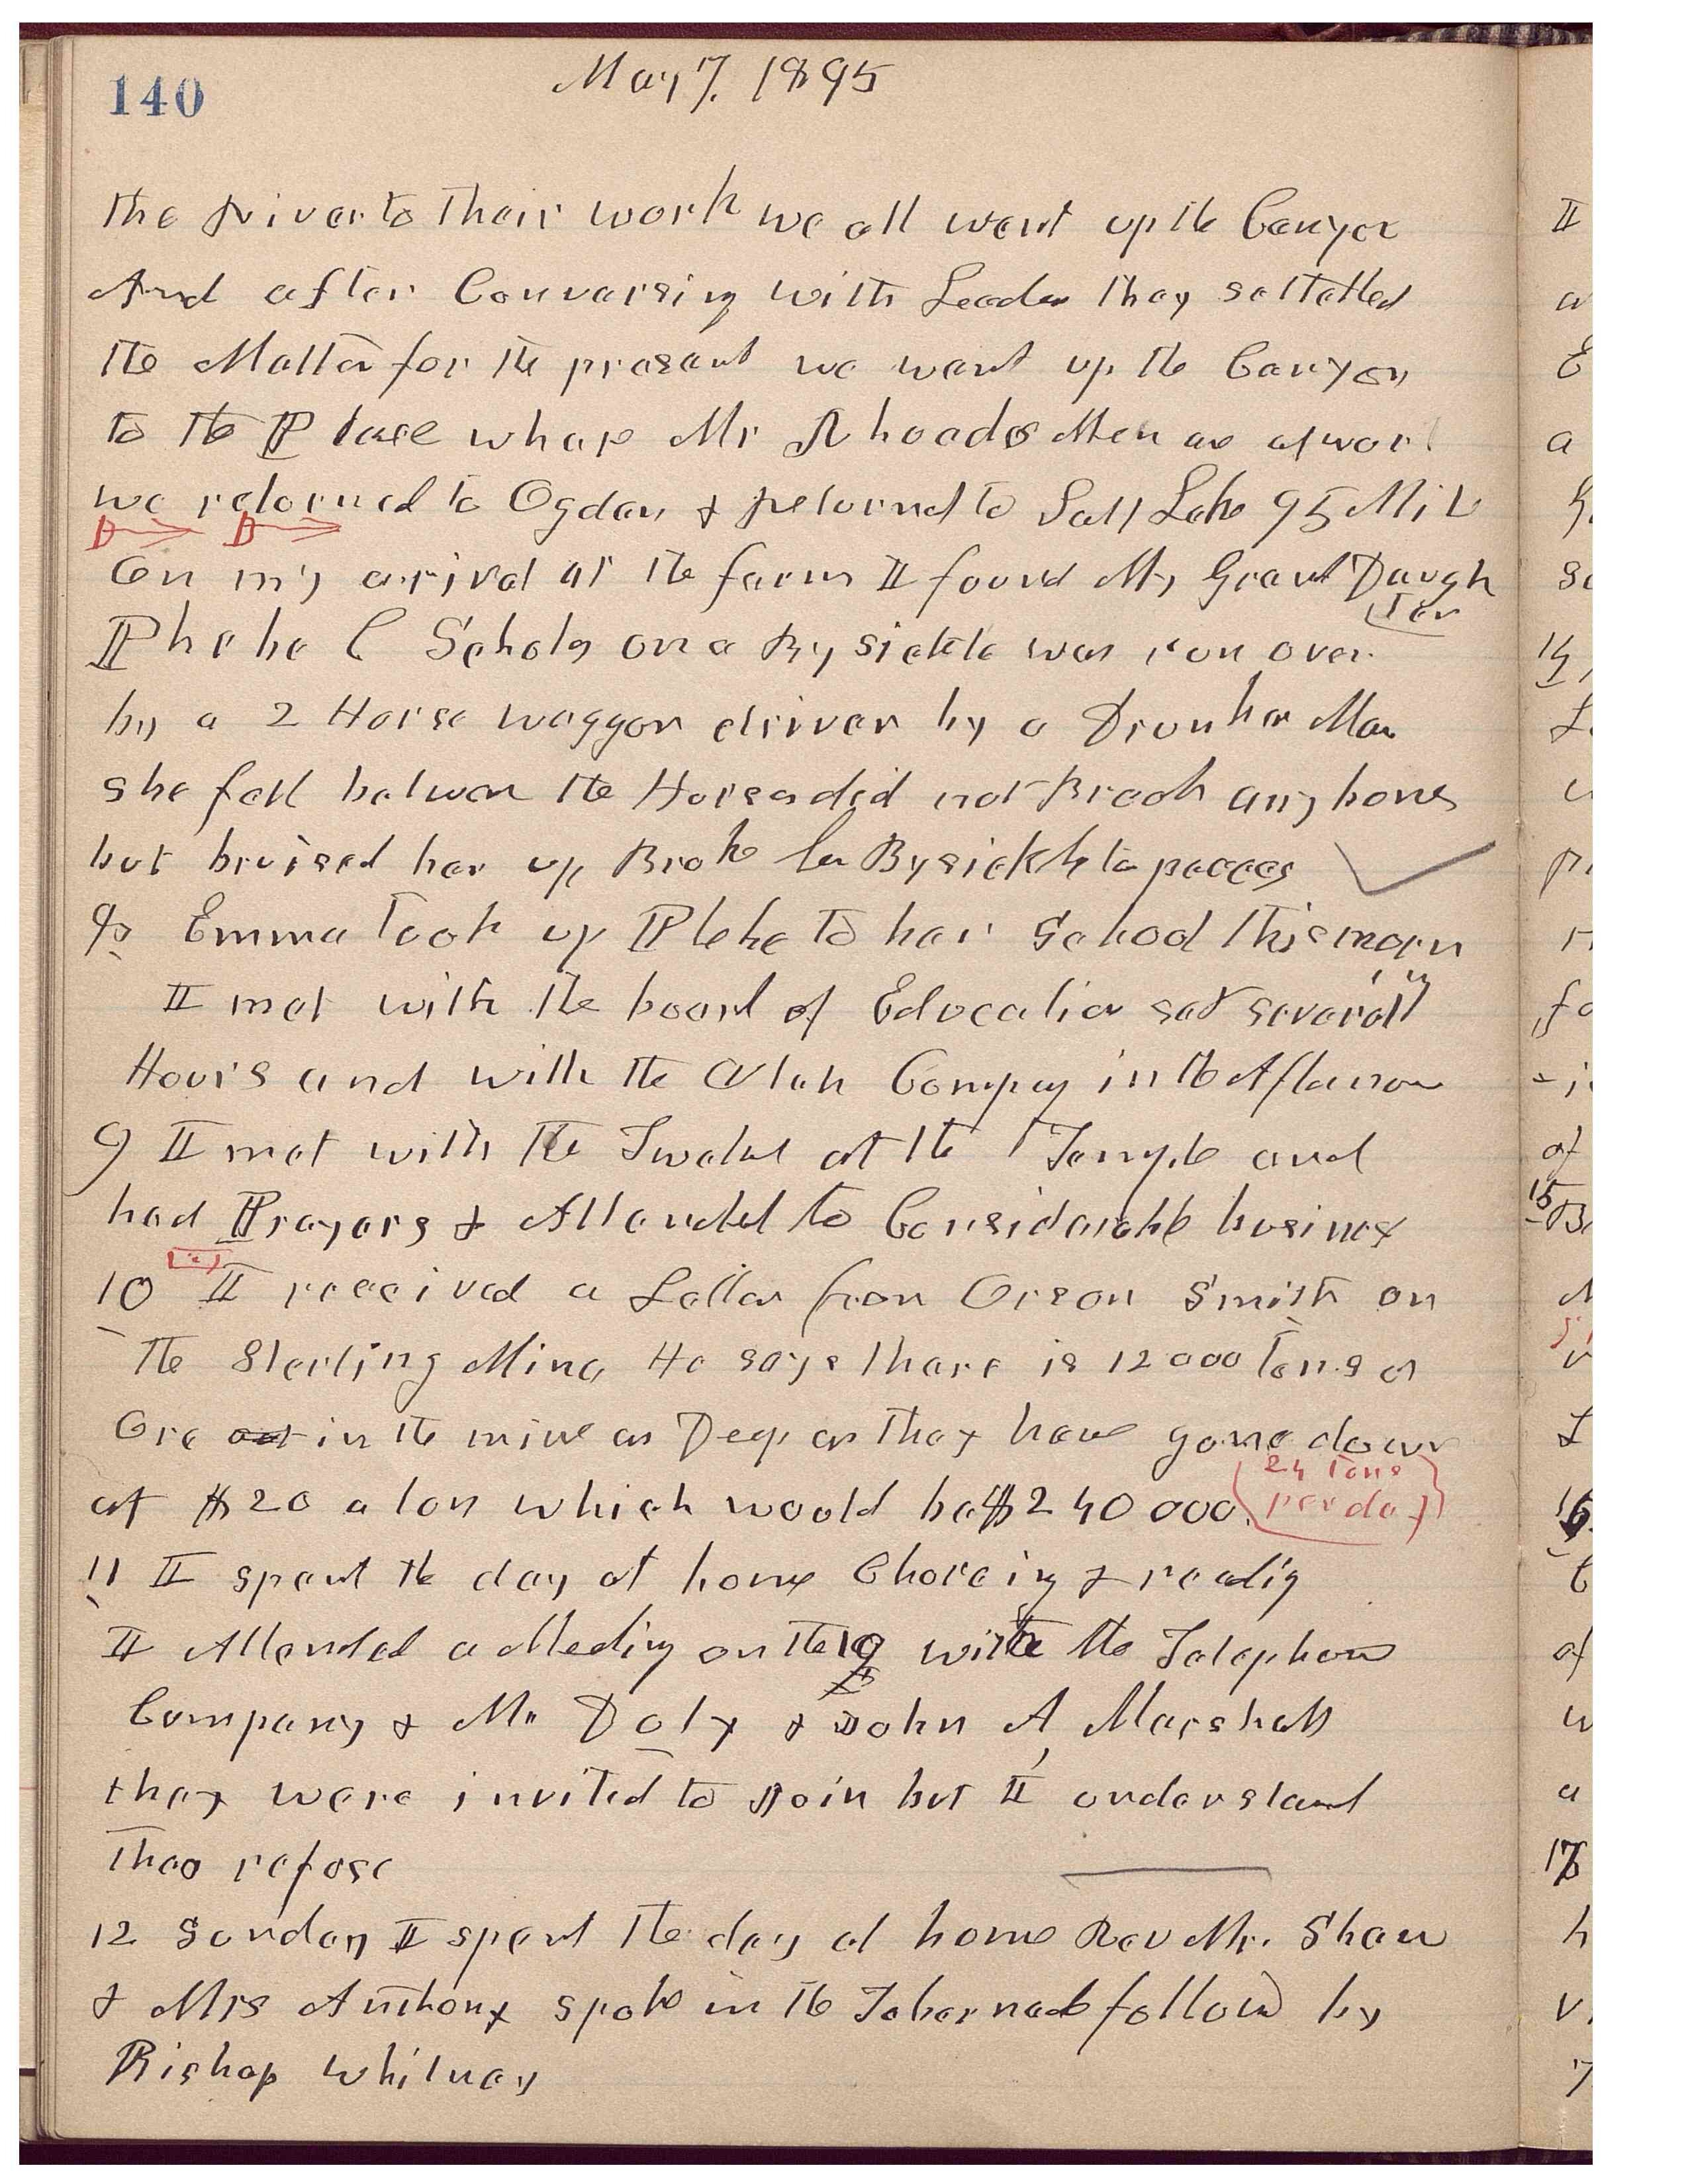 140
May 7, 1895
the River to their work we all went up the Canyon
And after Conversing with Leader they settelled
the Matter for the presant we went up the Canyon
to the Place whare Mr Rhoades Men are at work
we returned to Ogden & returned to Salt Lake 95 Mils
On my arival at the farm I found My Grand Daugh
ter
Phebe C Scholes on a Bysickle was run over
by a 2 Horse waggon driven by a Drunken Man
she fell between the Horses did not Break any bones
but bruised her up Broke her Bysickle to pieces
8 Emma took up Phebe to her School this morn
ing
I met with the board of Education sat several
Hours and with the Utah Company in the Afternoon
9 I met with the Twelve at the Temple and
had Prayers & Attended to Considerable business
10 I received a Letter from Orson Smith on
the Sterling Mine He says thare is 12000 Tons of
Ore out in the mine as Deep as they have gone down
24 Tons
at $20 a ton which would be $240000. per day
11 I spent the day at home Choreing & reading
I Attended a Meeting on the 10 with the Telephone
Company & Mr Daly & John A Marshall
they were invited to Join but I understand
thee refose
12 Sunday I spent the day at home Rev Mr. Shaw
& Mrs Anthony spoke in the Tabernacle follow by
Bishop Whitney